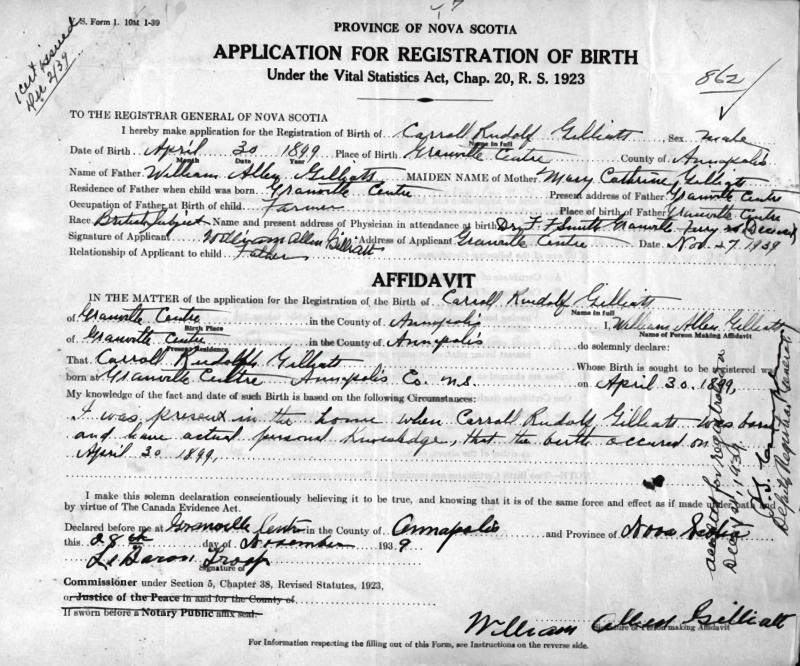 N. S. Form 1. 10M 1-39
PROVINCE OF NOVA SCOTIA
APPLICATION FOR REGISTRATION OF BIRTH
Under the Vital Statistics Act, Chap. 20, R. S. 1923
Cert issued
Dec 2/39
862
TO THE REGISTRAR GENERAL OF NOVA SCOTIA
I hereby make application for the Registration of Birth of Carroll Rudolf Gilliatt Sex male
Name in full
Date of Birth April 30 1899 Place of Birth Granville Centre County of Annapolis
Month Date Year
Name of Father William Allen Gilliatt MAIDEN NAME of Mother Mary Cathrine Gilliatt
Residence of Father when child was born Granville Centre Present address of Father Granville Centre
Occupation of Father at Birth of child Farmer Place of birth of Father Granville Centre
Race British Subject Name and present address of Physician in attendance at birth Dr. F. Smith Granville Ferry
Signature of Applicant William Allen Gilliatt Address of Applicant Granville Centre Date Nov. 27 1939
Relationship of Applicant to child Father
AFFIDAVIT
IN THE MATTER of the application for the Registration of the Birth of Carroll Rudolf Gilliatt
Name in full
of Granville Centre in the County of Annapolis I, William Allen Gilliatt
Birth Place Name of Person Making Affidavit
of Granville Centre in the County of Annapolis do solemnly declare:
Present Residence
That Carroll Rudolph Gilliatt Whose Birth is sought to be registered was
born at Granville Centre Annapolis Co. N.S. on April 30 1899,
My knowledge of the fact and date of such Birth is based on the following Circumstances:
I was present in the home when Carroll Rudolf Gilliatt was born
and have actual personal knowledge, that the birth occured on
April 30 1899,
I make this solemn declaration conscientiously believing it to be true, and knowing that it is of the same force and effect as if made under oath and
by virtue of The Canada Evidence Act.
Declared before me at Granville Centre in the County of Annapolis and Province of Nova Scotia
this 28th day of November 1939
LeBaron Troop
Signature of
Commissioner under Section 5, Chapter 38, Revised Statutes, 1923,
or Justice of the Peace in and for the County of
If sworn before a Notary Public affix seal.
William Allen Gilliatt
Signature of Person making Affidavit
For Information respecting the filling out of this Form, see Instructions on the reverse side.
accepted for registration
Deputy Registrar General